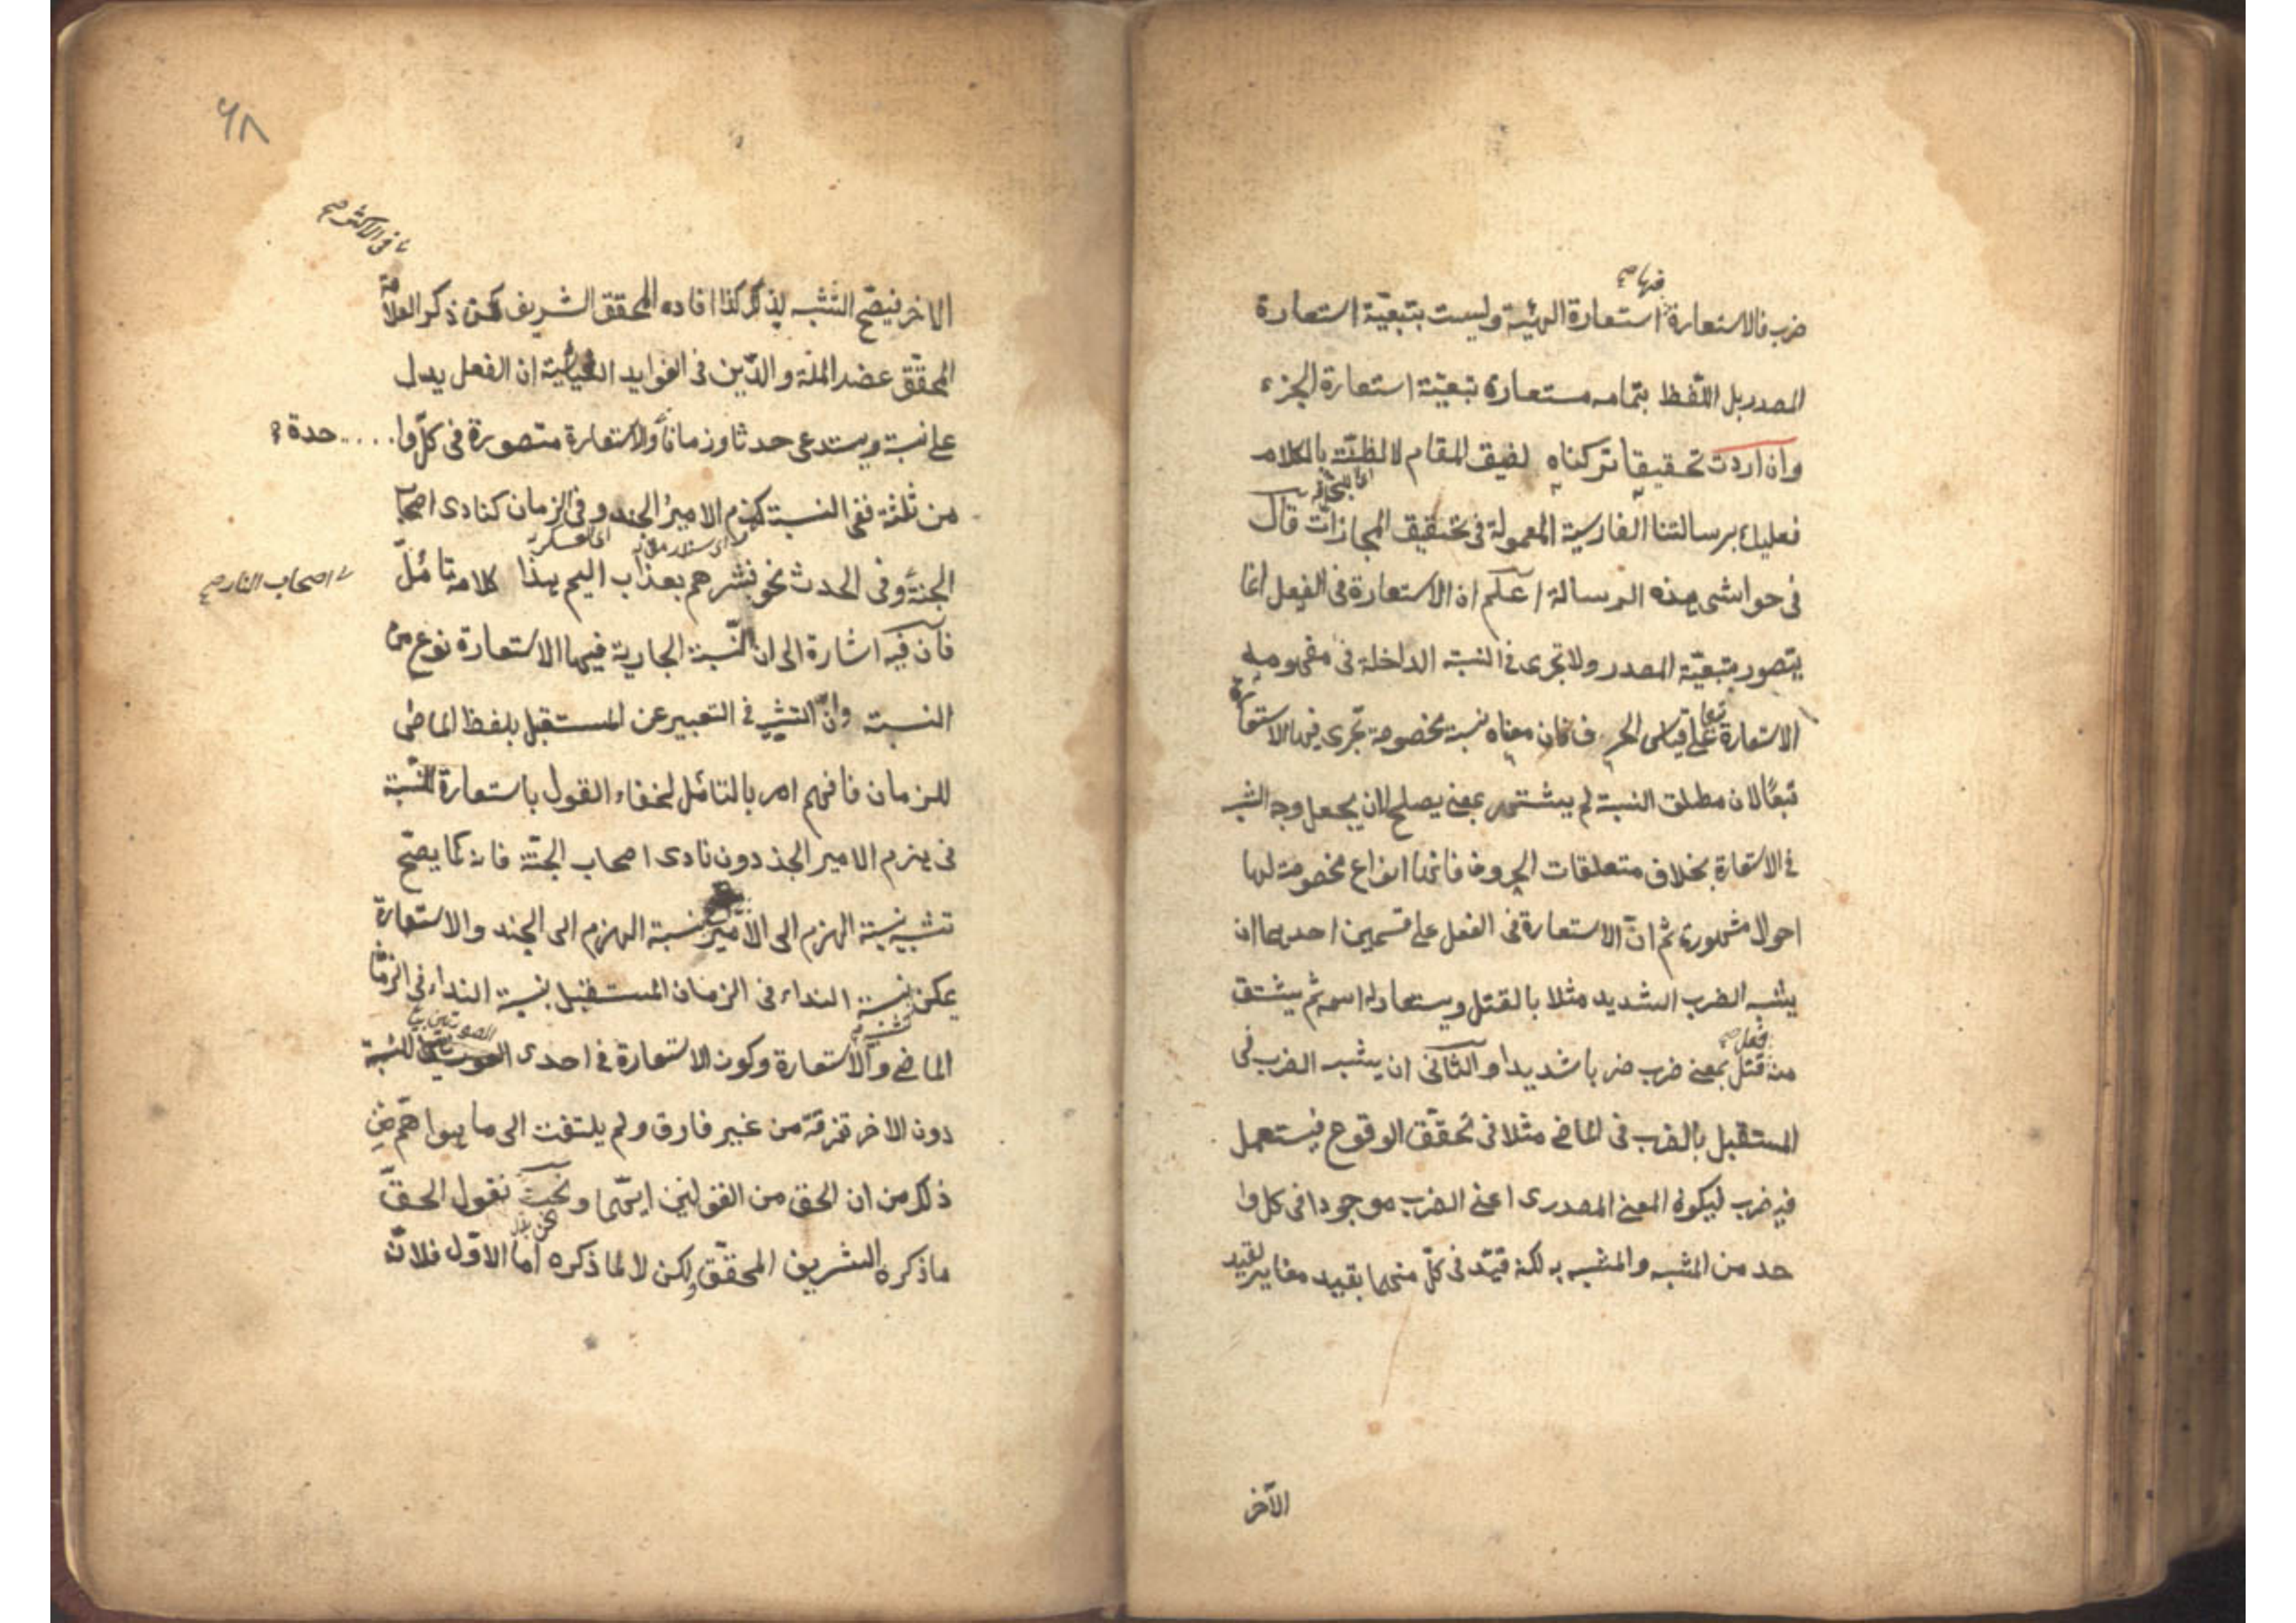 فيها صح
ضرب فالاستعارة استعارة الهيئة وليست بتبعية استعارة
المصدر بل اللفظ بتمامه مستعارة تبعية استعارة الجزء
وان اردت تحقيقا تركناه لضيق المقام لا لظنة بالكلام
فعليك برسالتنا الفارسية المعمولة فى تحقيق المجازات قال
فى حواشى هذه الرسالة اعلم ان الاستعارة فى الفعل انما
يتصور بتبعية المصدر ولا تجرى فى النسبة الداخلة فى مفهومه
الاستعارة تبعا على قياس الحرف فان معناه نسبة مخصوصة تجرى فيها الاستعارة
تبعًا لان مطلق النسبة لم يشتهر بمعنى يصلح لان يجعل وجه الشبه
فى الاستعارة بخلاف متعلقات الحروف فانها انواع مخصوصة لها
احوال مشهورة ثم انّ الاستعارة فى الفعل على قسمين احدهما ان
يشبه الضرب الشديد مثلا بالقتل ويستعار له اسمه ثم يشتق
من قتل بمعنى ضرب ضربا شديدا والثانى ان يشبه الضرب فى
المستقبل بالضرب فى الماضى مثلا فى تحقق الوقوع فيستعمل
فيه ضرب ليكون المعنى المصدرى اعنى الضرب موجودا فى كل وا
حد من المشبه والمشبه به لكنه قيّد فى كلّ منهما بقيد مغاير لقيد
الآخر
٦٨
فى الاكثر صح
الاخر فيصح التشبه لذلك كذا افاده المحقق الشريف لكن ذكر العلامة
المحقق عضد الملة والدّين فى الفوايد الغياثية ان الفعل يدل
على نسبة ويستدعى حدثا وزمانا والاستعارة متصورة فى كلّ وا.... حدة
من ثلثة ففى النسبة كهزم الامير الجند وفى الزمان كنادى اصحاب
الجنة وفى الحدث نحو فبشرهم بعذاب اليم هذا كلامه تأمّل
اصحاب النار صح
فان فيه اشارة الى ان النّسبة الجارية فيها الاستعارة نوع من
النسبة وانّ التشبيه فى التعبير عن المستقبل بلفظ الماضى
للزمان فافهم امر بالتائمل لخفاء القول باستعارة النّسبة
فى يهزم الامير الجند دون نادى اصحاب الجنّة فانه كما يصحّ
تشبيه نسبة الهزم الى الامير بنسبة الهزم الى الجند والاستعارة
يمكن نسبة النداء فى الزمان المستقبل بنسبة النداء فى الزمان
الماضى والاستعارة وكون الاستعارة فى احدى الصورتين للنسبة
دون الاخر تفرقة من غير فارق ولم يلتفت الى ما هو اهمّ من
ذلك من ان الحق من القولين ايّهما ونحن نقول الحقّ
ما ذكره الشريف المحقّق ولكن لا لما ذكره اما الاوّل فلانّ